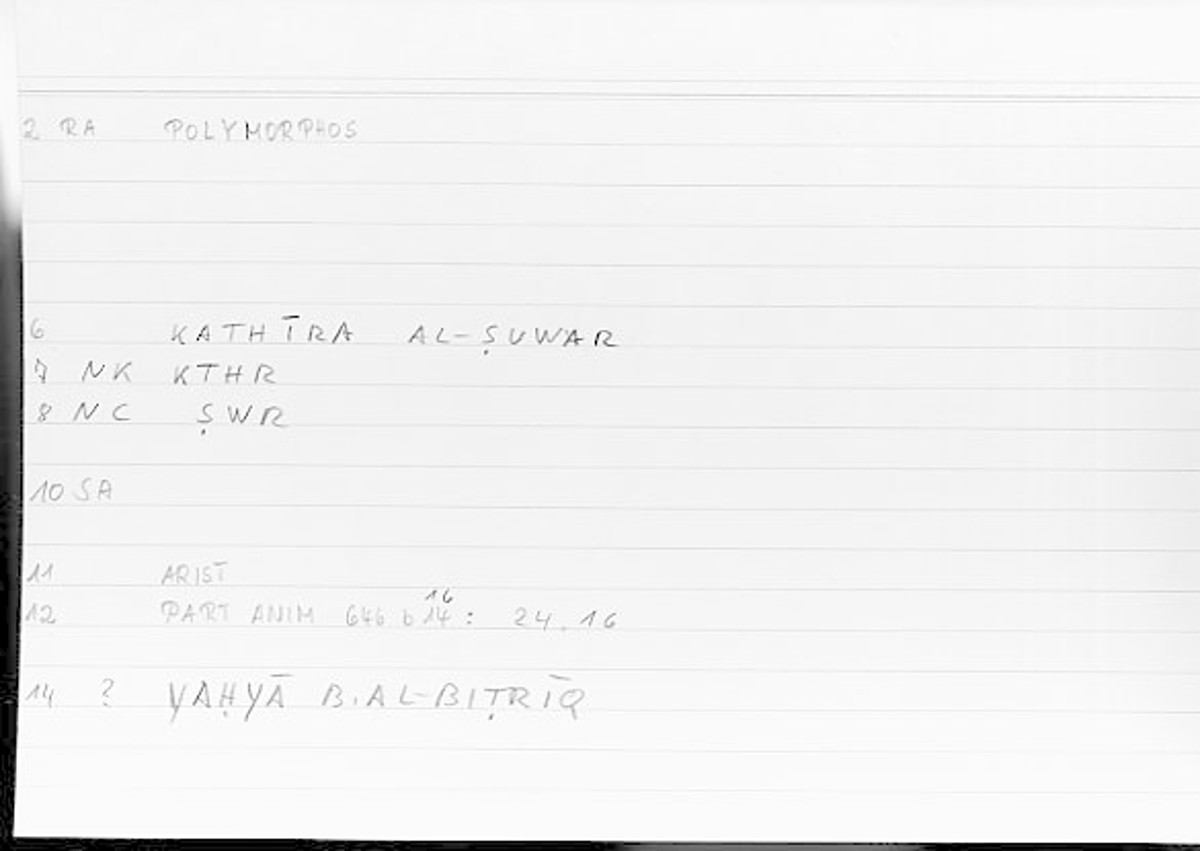 2 RA POLYMORPHOS
6 KATHĪRA AL-ṢUWAR
7 NK KTHR
8 NC ṢWR
10 SA
11 ARIST
16
12 PART ANIM 646 b 14 : 24.16
14 ? YAḤYĀ B. AL-BIṬRĪQ